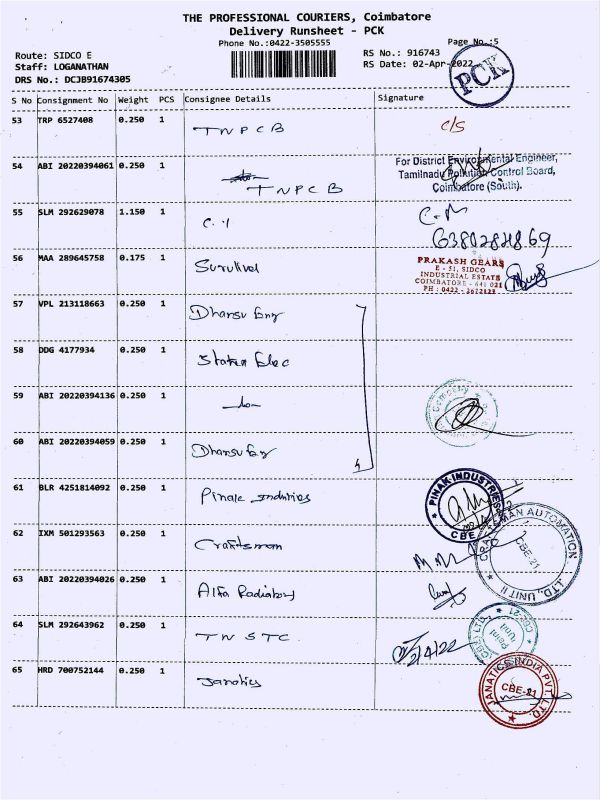 THE PROFESSIONAL COURIERS, Coimbatore
Delivery Runsheet - PCK
Phone No.:0422-3505555
Page No.:5
Route: SIDCO E
RS No.: 916743
Staff: LOGANATHAN
RS Date: 02-Apr-2022
DRS No.: DCJB91674305
PCK
S No Consignment No Weight PCS Consignee Details Signature
53 TRP 6527408 0.250 1 TNPCB C/S
54 ABI 20220394061 0.250 1 TNPCB
For District Environmental Engineer,
Tamilnadu Pollution Control Board,
Coimbatore (South).
55 SLM 292629078 1.150 1 C.I C.M
56 MAA 289645758 0.175 1 Survival
PRAKASH GEARS
E - 51, SIDCO
INDUSTRIAL ESTATE
COIMBATORE - 641 021
PH : 0422 - 2672128
57 VPL 213118663 0.250 1 Dhansu Eng
58 DDG 4177934 0.250 1 Elec
59 ABI 20220394136 0.250 1
60 ABI 20220394059 0.250 1 Dhansu Eng
61 BLR 4251814092 0.250 1 Pinak Industries
PINAK INDUSTRIES
CBE
62 IXM 501293563 0.250 1 Craftsman
CRAFTSMAN AUTOMATION
LTD., UNIT II
CBE-21
63 ABI 20220394026 0.250 1 Alfa Radiators
64 SLM 292643962 0.250 1 TNSTC 2/4/22
65 HRD 700752144 0.250 1 Janatics
JANATICS INDIA PVT. LTD.
CBE-21